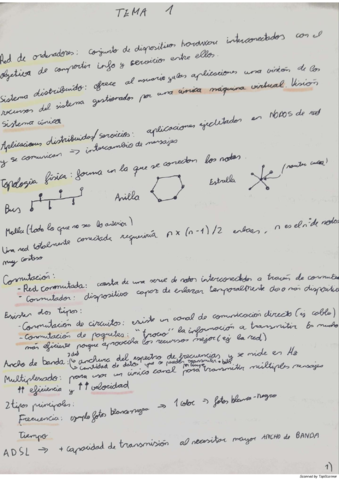 TEMA 1
Red de ordenadores: conjunto de dispositivos hardware interconectados con el
objetivo de compartir info y servicios entre ellos
Sistema distribuido: ofrece al usuario y a las aplicaciones una visión de los
recursos del sistema gestionados por una única máquina virtual Visión
Sistema única
Aplicaciones distribuidas/servicios: aplicaciones ejecutadas en NODOS de red
y se comunican => intercambio de mensajes
Topología física: forma en la que se conectan los nodos
Bus
Anillo
Estrella
Malla (todo lo que no sea lo anterior)
Una red totalmente conectada requeriría n x (n-1)/2 enlaces, n es el nº de nodos
muy costoso
Conmutación:
- Red conmutada: consta de una serie de nodos interconectados a través de conmutadores
- Conmutador: dispositivo capaz de enlazar temporalmente dos o más dispositivos
Existen dos tipos:
- Conmutación de circuitos: existe un canal de comunicación directo (ej cable)
- Conmutación de paquetes: "trocea" la información a transmitir. Es mucho
más eficiente porque aprovecha los recursos mejor (ej la red)
Ancho de banda anchura del espectro de frecuencias, se mide en Hz
cantidad de datos que se pueden transmitir
Multiplexado: para usar un único canal para transmitir múltiples mensajes
↑↑ eficiencia y ↑↑ velocidad
2 tipos principales:
Frecuencia:
Tiempo:
ADSL → + capacidad de transmisión al necesitar mayor ANCHO de BANDA
1)
Scanned by TapScanner